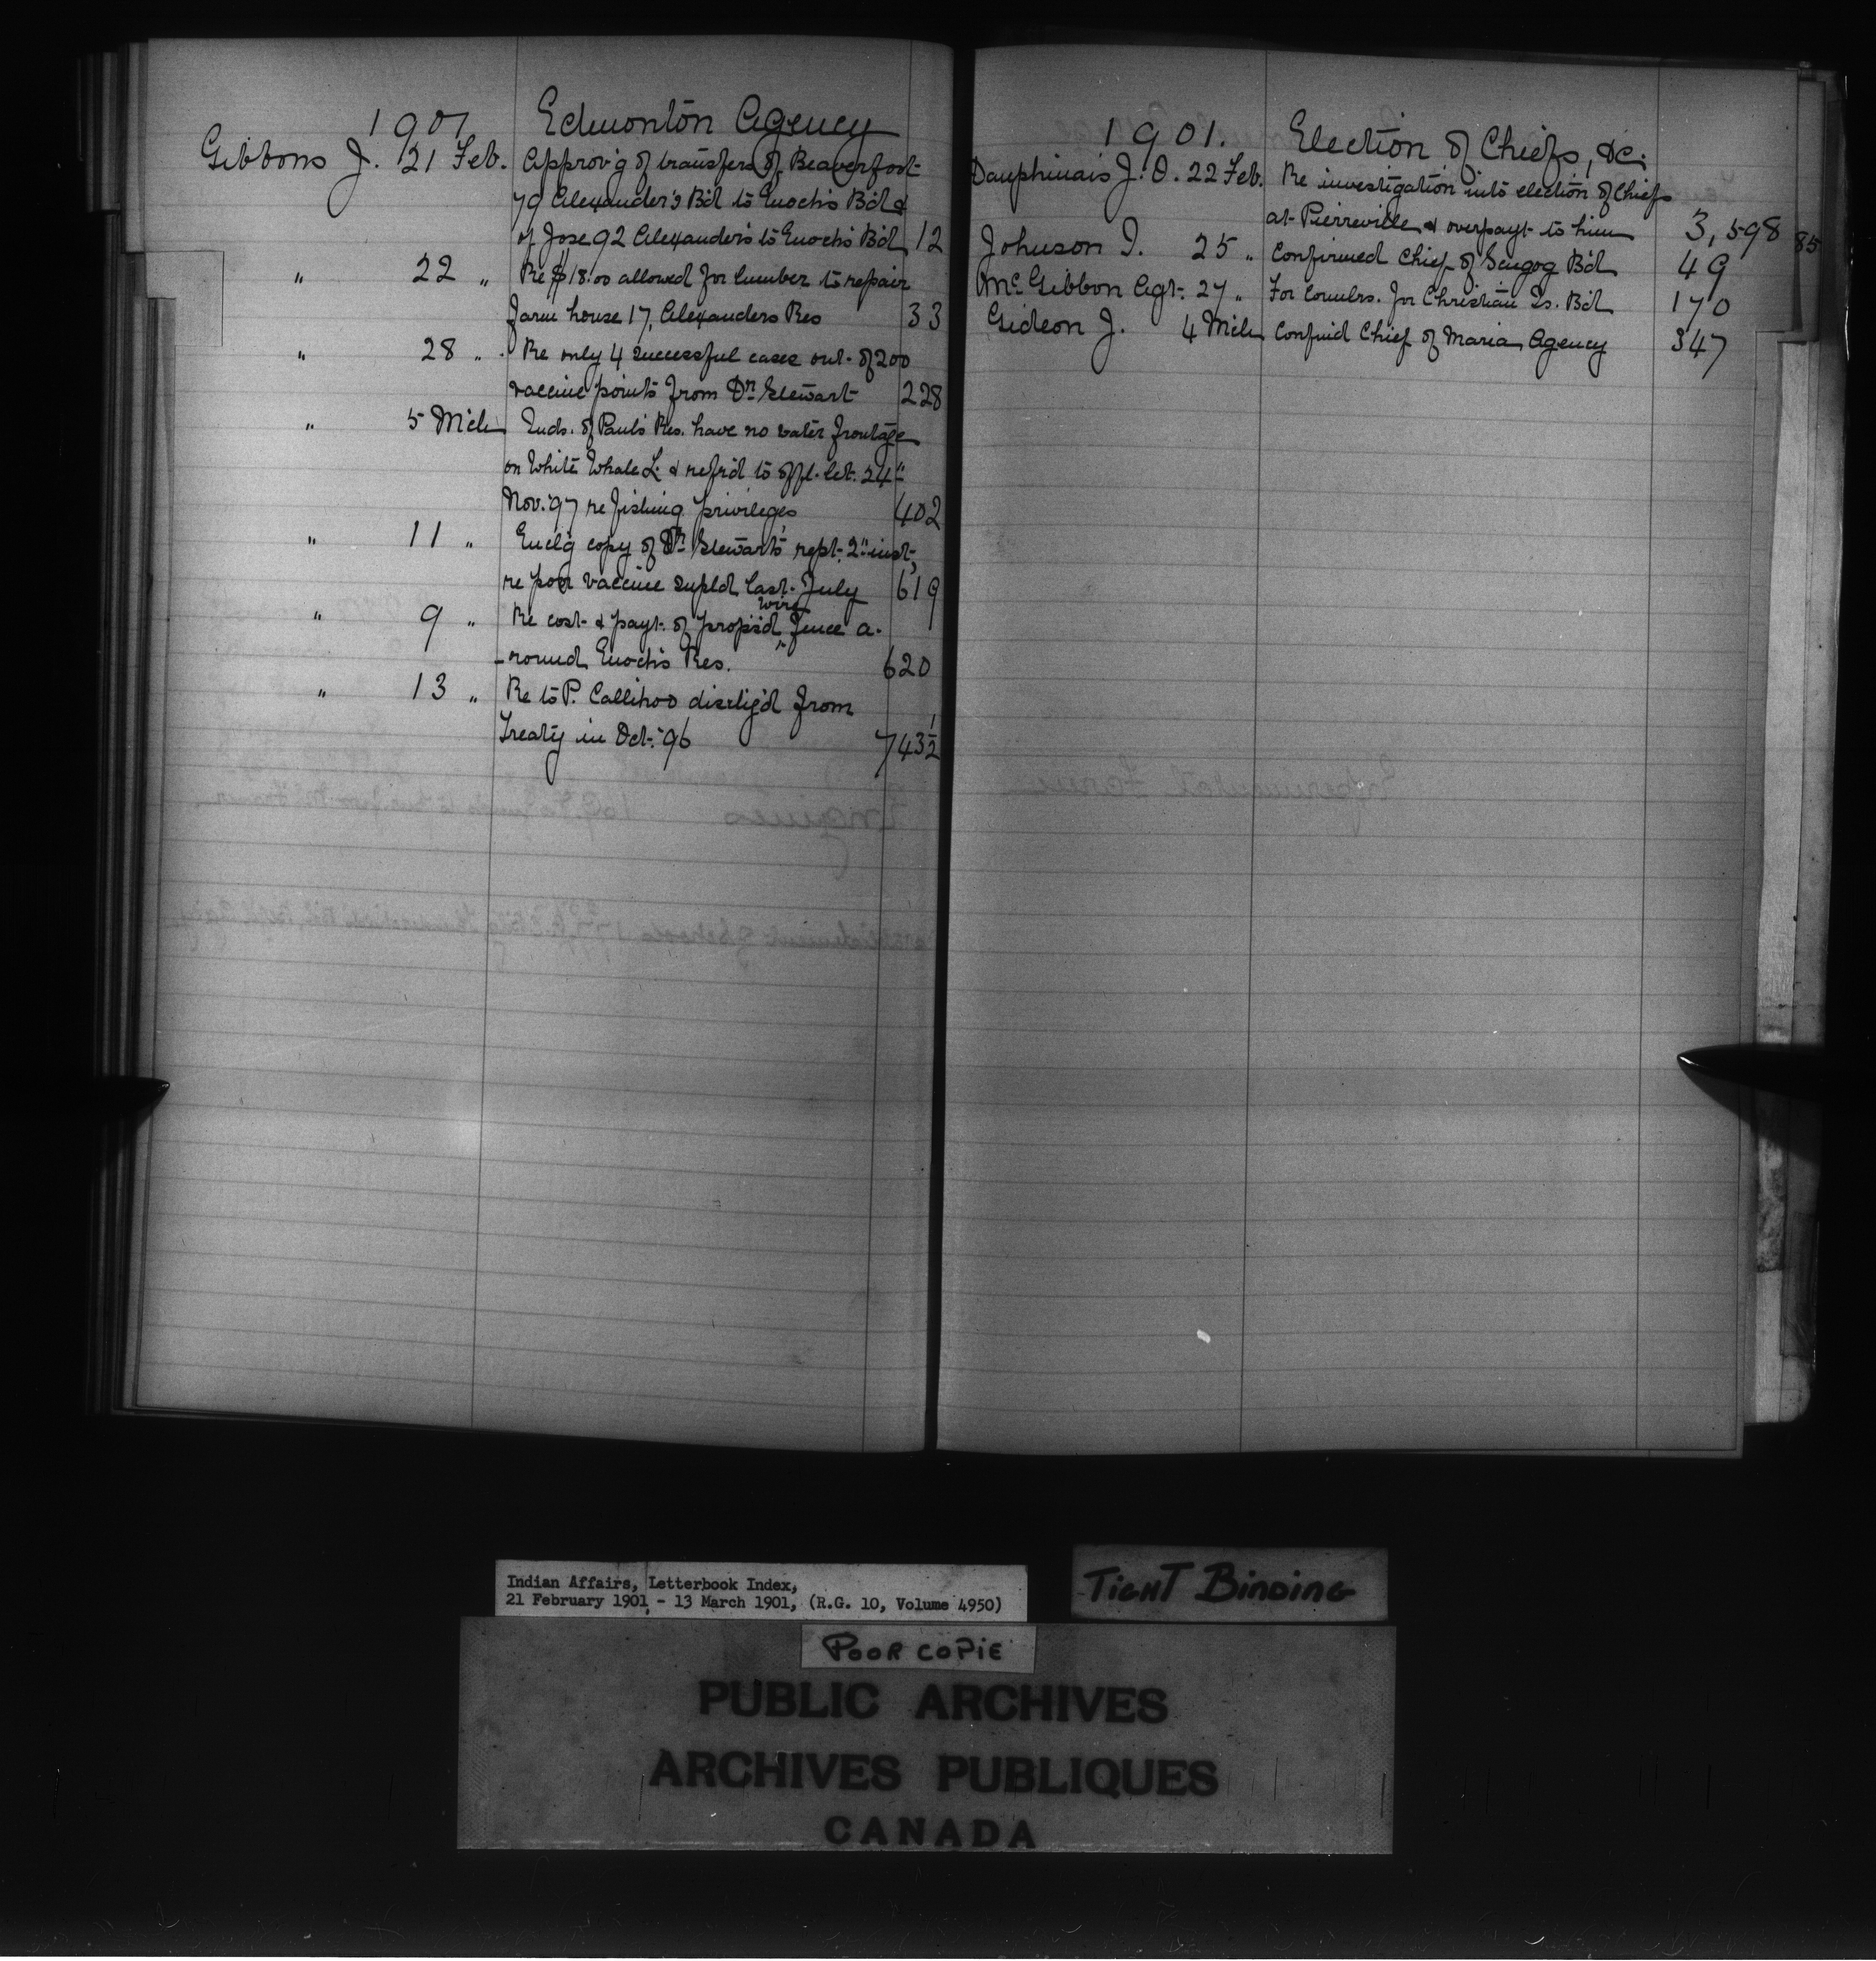 1901 Edmonton Agency
Gibbons J. 21 Feb. Approv'g of transfers of Beaverfoot
79 Alexander's B'd to Enoch's B'd &
of Jose 92 Alexander's to Enoch's B'd 12
" 22 " Re $18.00 allowed for lumber to repair
farm house 17, Alexanders Res 33
" 28 " Re only 4 successful cases out of 200
vaccine points from Dr. Stewart 228
" 5 Mch Inds. of Paul's Res. have no water frontage
on White Whale L. & refr'd to offl. let. 24"
Nov. '97 re fishing privileges 402
" 11 " Encl'g copy of Dr. Stewart's rept. 2" inst,
re poor vaccine supld last July 619
" 9 " Re cost & payt. of propos'd wire fence a-
-round Enoch's Res. 620
" 13 " Re to P. Callihoo dischg'd from
Treaty in Oct. '96 743½
1901. Election of Chiefs, &c.
Dauphinais J. O. 22 Feb. Re investigation into election of Chiefs
at Pierreville & overpayt to him 3, 598 85
Johnson I. 25 " Confirmed Chief of Scugog B'd 49
McGibbon Agt. 27 " For Counlrs. for Christian Is. B'd 170
Gideon J. 4 Mch Confmd Chief of Maria Agency 347
Indian Affairs, Letterbook Index,
21 February 1901 - 13 March 1901, (R.G. 10, Volume 4950)
TIGHT BINDING
POOR COPIE
PUBLIC ARCHIVES
ARCHIVES PUBLIQUES
CANADA